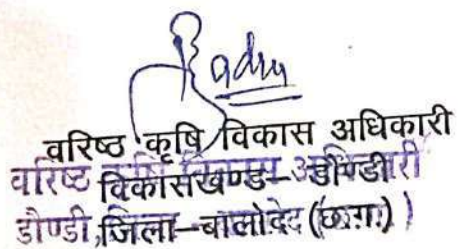 वरिष्ठ कृषि विकास अधिकारी
वरिष्ट अधिकारी
विकासखण्ड– डौण्डी
डौण्डी, जिला–बालोद (छ.ग.)